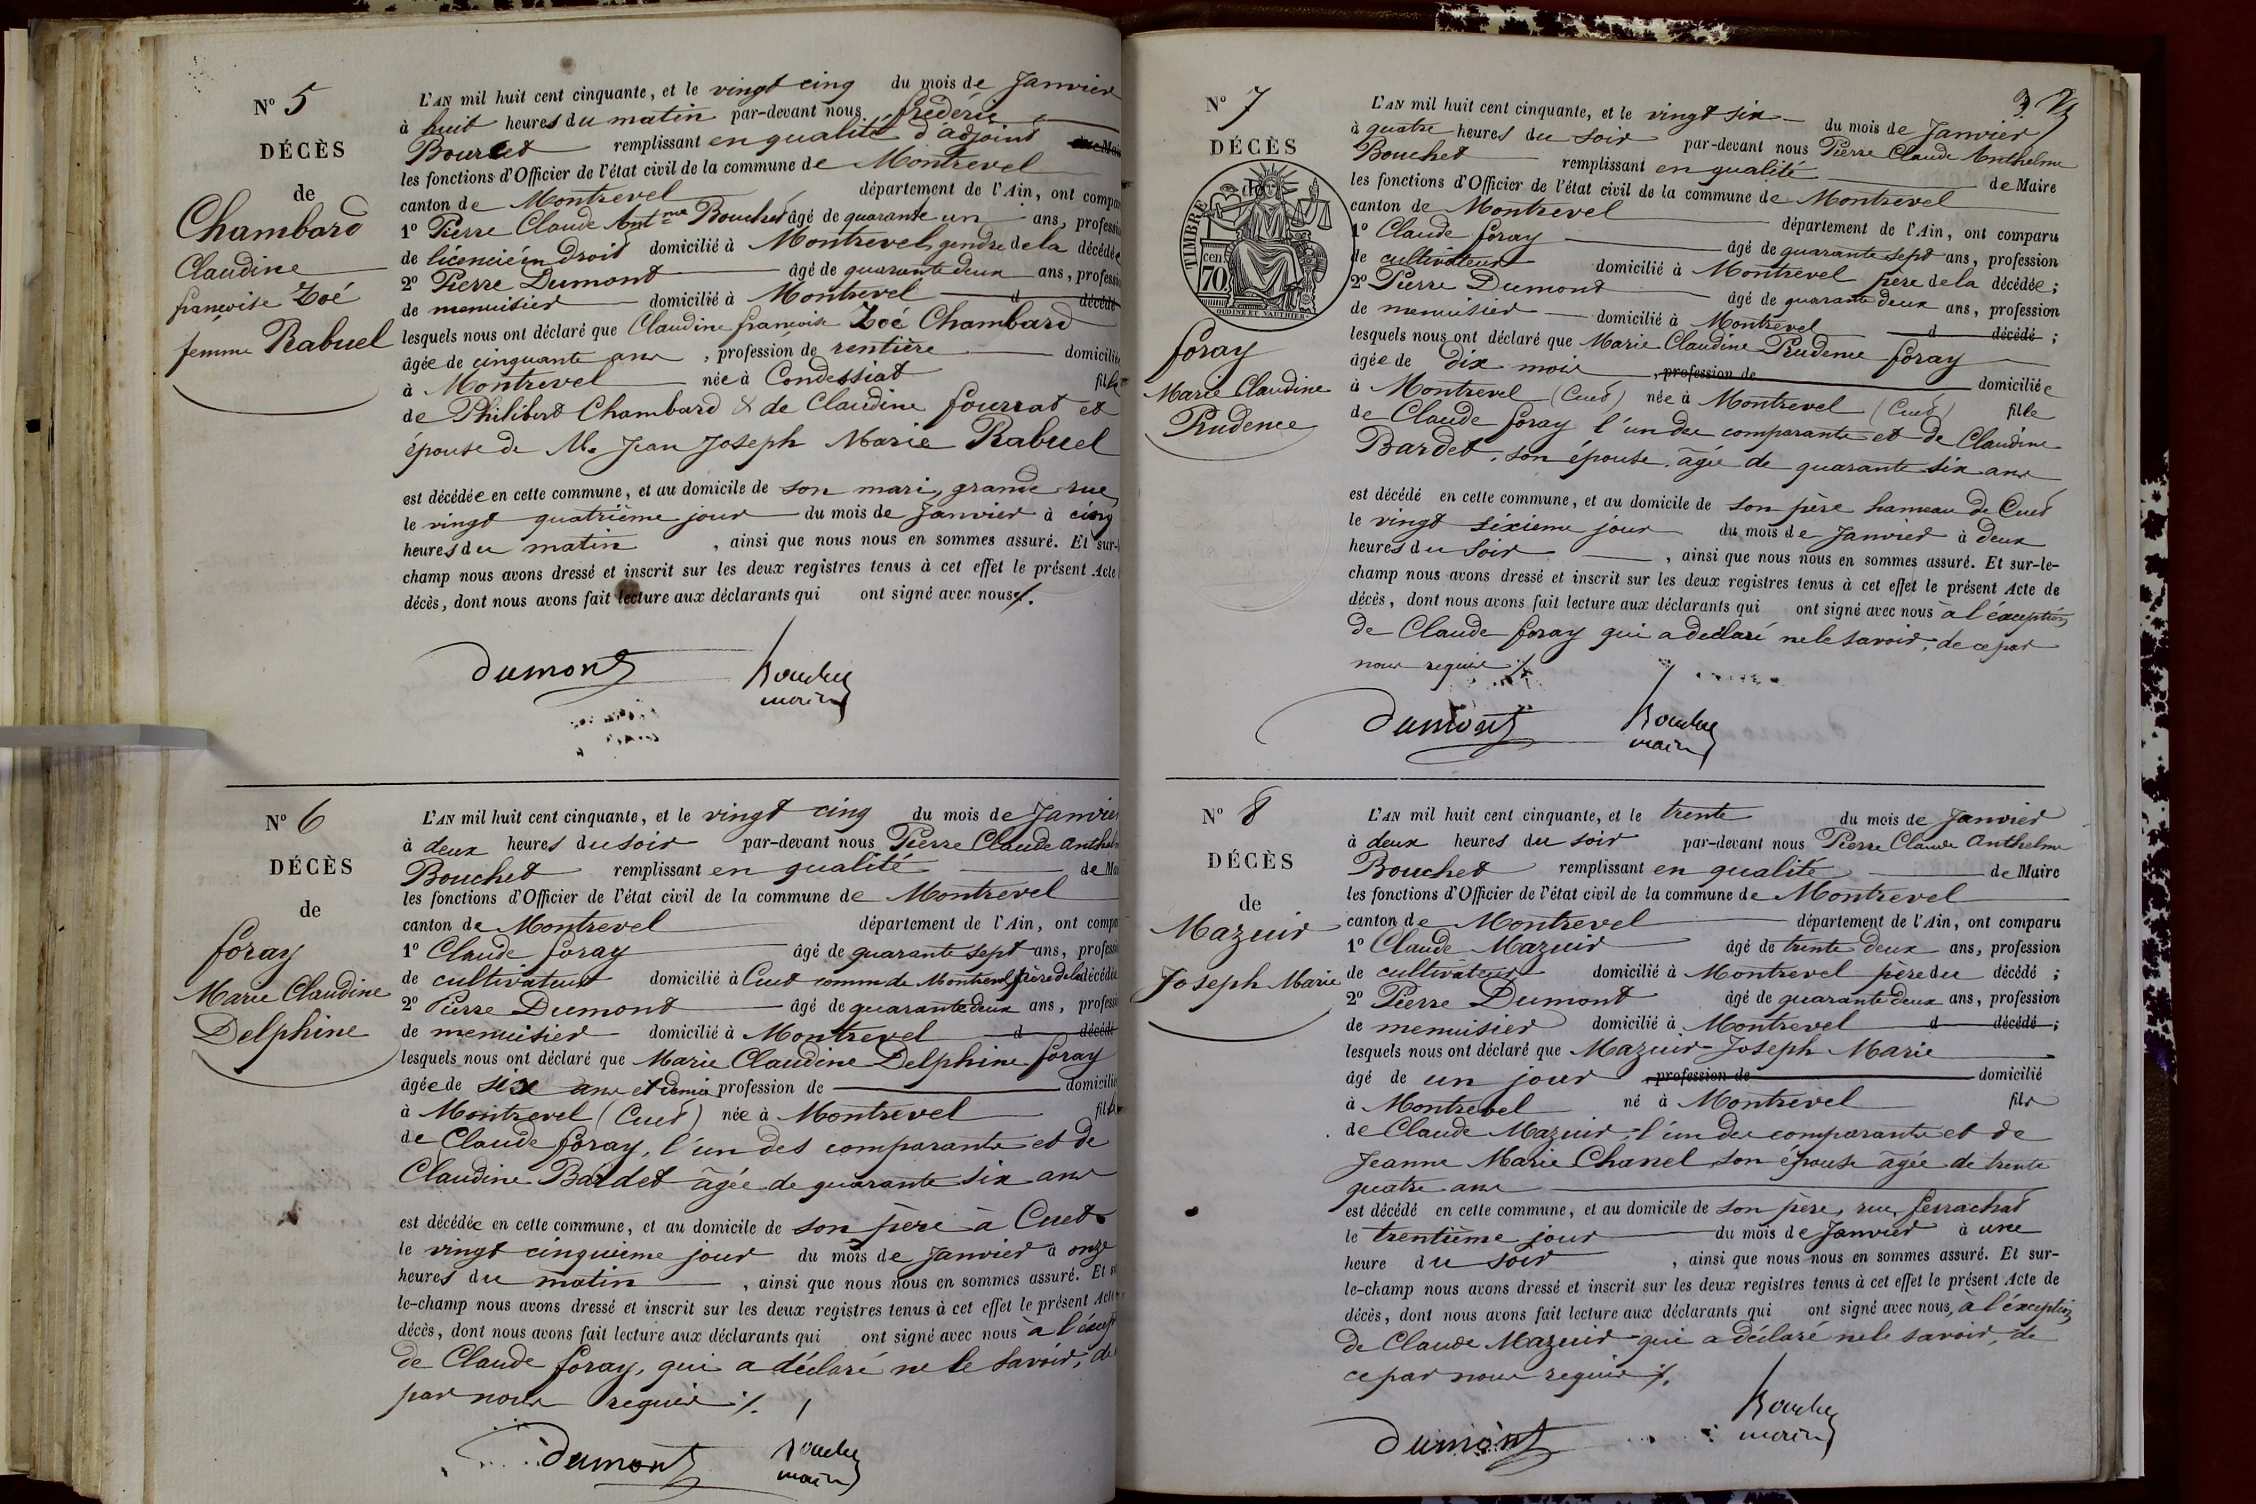 N° 5
DÉCÈS
de
Chambard
Claudine
françoise Zoé
femme Rabuel
L'AN mil huit cent cinquante, et le vingt cinq du mois de Janvier
à huit heures du matin par-devant nous frédéric
Bourcet remplissant en qualité d'adjoint
les fonctions d'Officier de l'état civil de la commune de Montrevel
canton de Montrevel département de l'Ain, ont compa
1° Pierre Claude Ant.me Bouchet âgé de quarante un ans, professi
de licencié in droit domicilié à Montrevel, gendre de la décédée
2° Pierre Dumont âgé de quarante deux ans, professi
de menuisier domicilié à Montrevel d décédé
lesquels nous ont déclaré que Claudine françoise Zoé Chambard
âgée de cinquante ans, profession de rentière domicilié
à Montrevel née à Condessiat fille
de Philibert Chambard & de Claudine fourrat et
épouse de M. Jean Joseph Marie Rabuel
est décédée en cette commune, et au domicile de son mari, grande rue,
le vingt quatrième jour du mois de Janvier à cinq
heures du matin, ainsi que nous nous en sommes assuré. Et sur-
champ nous avons dressé et inscrit sur les deux registres tenus à cet effet le présent Acte
décès, dont nous avons fait lecture aux déclarants qui ont signé avec nous ./.
Dumont Bouchet
maire
N° 6
DÉCÈS
de
foray
Marie Claudine
Delphine
L'AN mil huit cent cinquante, et le vingt cinq du mois de Janvier
à deux heures du soir par-devant nous Pierre Claude Anthel
Bouchet remplissant en qualité de Mai
les fonctions d'Officier de l'état civil de la commune de Montrevel
canton de Montrevel département de l'Ain, ont compa
1° Claude foray âgé de quarante sept ans, professi
de cultivateur domicilié à Cuet comm de Montrevel père de la décédée
2° Pierre Dumont âgé de quarante deux ans, professi
de menuisier domicilié à Montrevel d décédé
lesquels nous ont déclaré que Marie Claudine Delphine foray
âgée de six ans et demi profession de domicilié
à Montrevel (Cuet) née à Montrevel fille
de Claude foray, l'un des comparants et de
Claudine Bardet âgée de quarante six ans
est décédée en cette commune, et au domicile de son père à Cuet
le vingt cinquième jour du mois de Janvier à onze
heures du matin, ainsi que nous nous en sommes assuré. Et s
le-champ nous avons dressé et inscrit sur les deux registres tenus à cet effet le présent Acte
décès, dont nous avons fait lecture aux déclarants qui ont signé avec nous à l'excep
de Claude foray, qui a déclaré ne le savoir, de
par nous requis ./.
Dumont Bouchet
maire
3
N° 7
DÉCÈS
de
TIMBRE
cen
70
OUDINÉ ET VAUTHIER
foray
Marie Claudine
Prudence
L'AN mil huit cent cinquante, et le vingt six du mois de Janvier
à quatre heures du soir par-devant nous Pierre Claude Anthelme
Bouchet remplissant en qualité de Maire
les fonctions d'Officier de l'état civil de la commune de Montrevel
canton de Montrevel département de l'Ain, ont comparu
1° Claude foray âgé de quarante sept ans, profession
de cultivateur domicilié à Montrevel père de la décédée ;
2° Pierre Dumont âgé de quarante deux ans, profession
de menuisier domicilié à Montrevel d décédé ;
lesquels nous ont déclaré que Marie Claudine Prudence foray
âgée de dix mois, profession de domiciliée
à Montrevel (Cuet) née à Montrevel (Cuet) fille
de Claude foray l'un des comparants et de Claudine
Bardet, son épouse, âgée de quarante six ans
est décédé en cette commune, et au domicile de son père hameau de Cuet
le vingt sixième jour du mois de Janvier à deux
heures du soir, ainsi que nous nous en sommes assuré. Et sur-le-
champ nous avons dressé et inscrit sur les deux registres tenus à cet effet le présent Acte de
décès, dont nous avons fait lecture aux déclarants qui ont signé avec nous à l'éxception
de Claude foray qui a déclaré ne le savoir, de ce par
nous requis ./.
Dumont Bouchet
maire
N° 8
DÉCÈS
de
Mazuir
Joseph Marie
L'AN mil huit cent cinquante, et le trente du mois de Janvier
à deux heures du soir par-devant nous Pierre Claude Anthelme
Bouchet remplissant en qualité de Maire
les fonctions d'Officier de l'état civil de la commune de Montrevel
canton de Montrevel département de l'Ain, ont comparu
1° Claude Mazuir âgé de trente deux ans, profession
de cultivateur domicilié à Montrevel père du décédé ;
2° Pierre Dumont âgé de quarante deux ans, profession
de menuisier domicilié à Montrevel d décédé ;
lesquels nous ont déclaré que Mazuir Joseph Marie
âgé de un jour, profession de domicilié
à Montrevel né à Montrevel fils
de Claude Mazuir, l'un des comparants et de
Jeanne Marie Chanel son épouse âgée de trente
quatre ans
est décédé en cette commune, et au domicile de son père, rue ferrachat
le trentième jour du mois de Janvier à une
heure du soir, ainsi que nous nous en sommes assuré. Et sur-
le-champ nous avons dressé et inscrit sur les deux registres tenus à cet effet le présent Acte de
décès, dont nous avons fait lecture aux déclarants qui ont signé avec nous, à l'éxception
de Claude Mazuir qui a déclaré ne le savoir, de
ce par nous requis ./.
Dumont Bouchet
maire